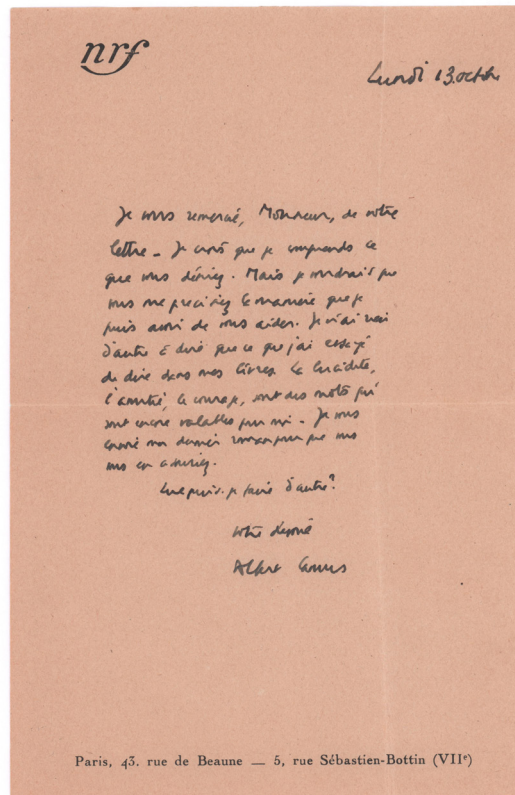 nrf
Lundi 13 octobre
Je vous remercie, Monsieur, de votre
lettre - Je crois que je comprends ce
que vous désirez. Mais je voudrais que
vous me précisiez la manière que je
puis avoir de vous aider. Je n'ai rien
d'autre à dire que ce que j'ai essayé
de dire dans mes livres. La lucidité,
l'amitié, le courage, sont des mots qui
sont encore valables pour moi - Je vous
envoie mon dernier roman pour que vous
vous en assuriez.
Que puis-je faire d'autre?
votre dévoué
Albert Camus
Paris, 43, rue de Beaune — 5, rue Sébastien-Bottin (VIIe)